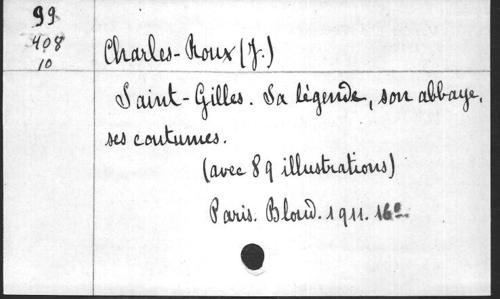 99
408
10
Charles-Roux (J.)
Saint-Gilles. Sa légende, son abbaye,
ses coutumes.
(avec 89 illustrations)
Paris. Bloud. 1911. 16º.